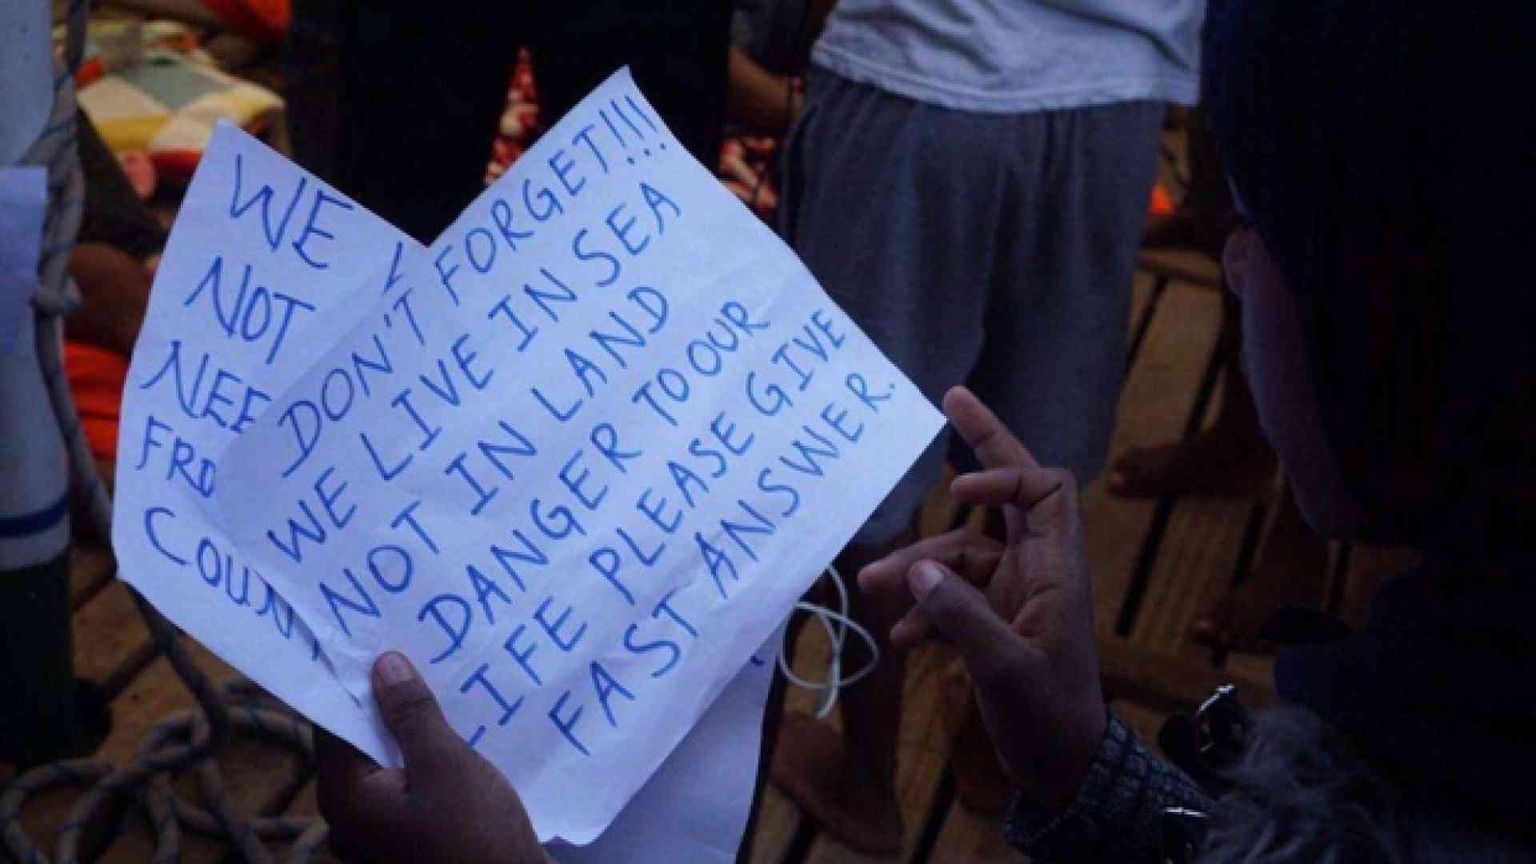 WE
NOT
NEE
FRO
COUN
DON'T FORGET!!!
WE LIVE IN SEA
NOT IN LAND
DANGER TO OUR
LIFE PLEASE GIVE
FAST ANSWER.